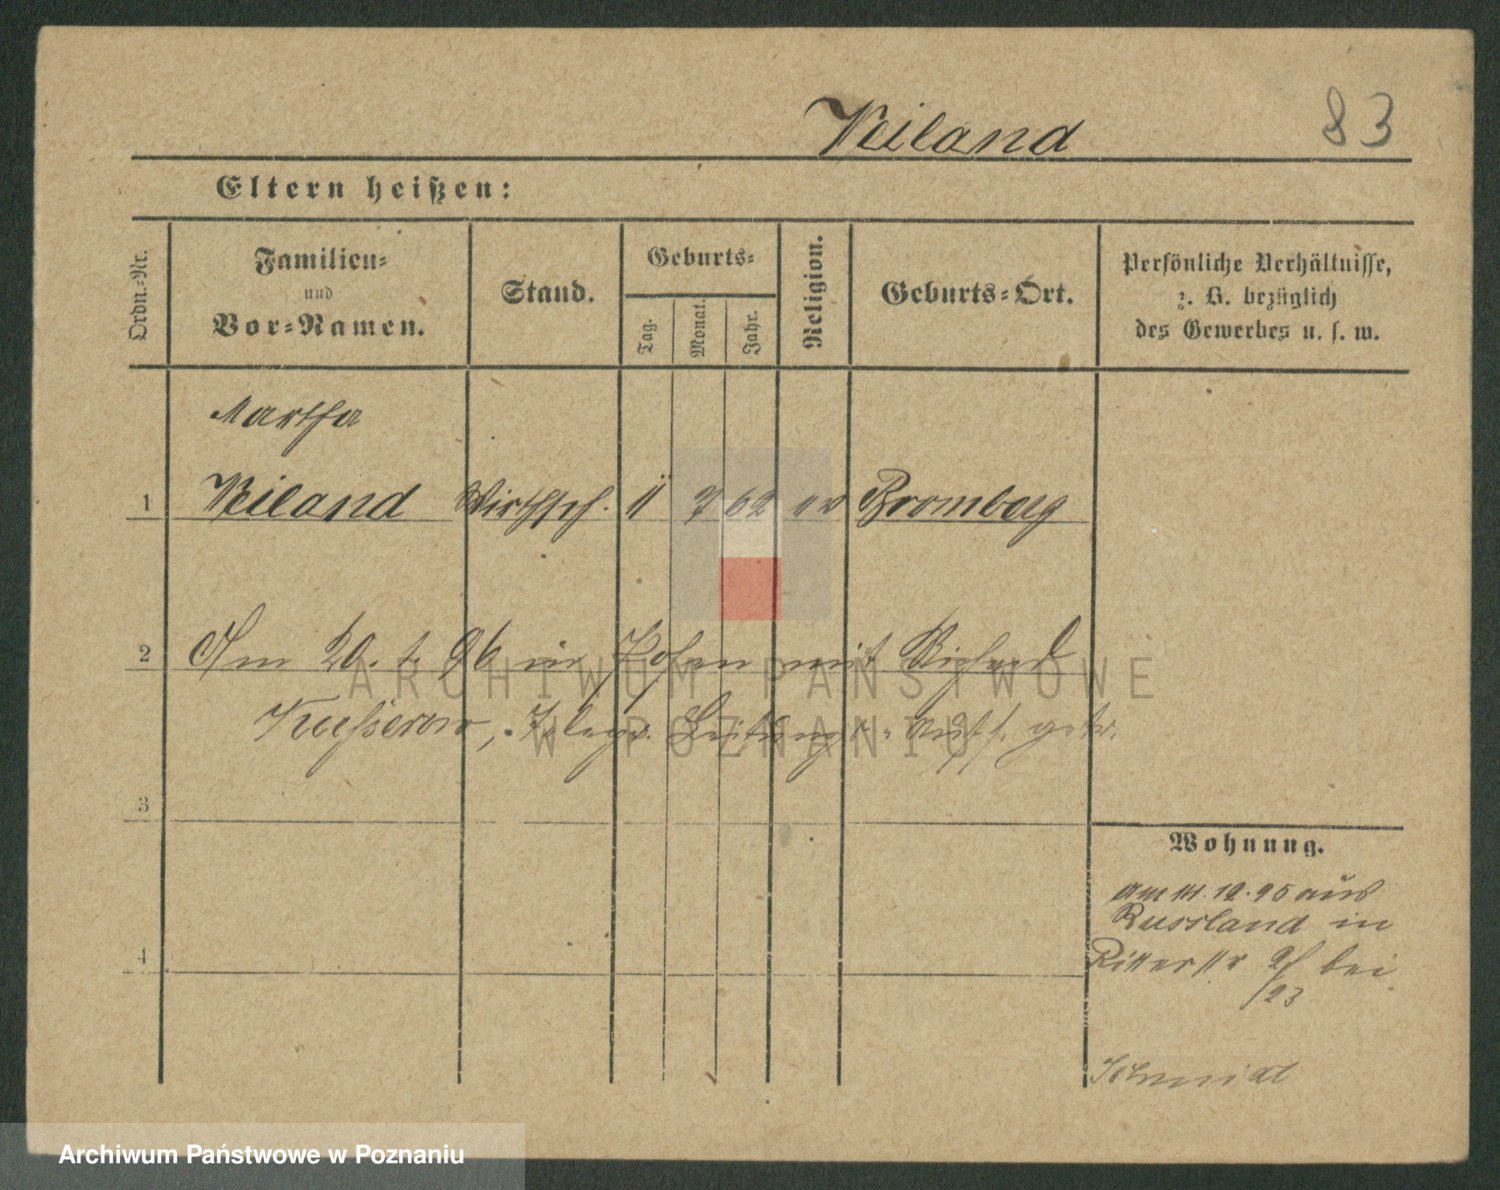 Weiland
83
Eltern heißen:
Ordn.-Nr.
Familien-
und
Vor-Namen.
Stand.
Geburts-
Tag.
Monat.
Jahr.
Religion.
Geburts-Ort.
Persönliche Verhältnisse,
z. B. bezüglich
des Gewerbes u. s. w.
Martha
1 Weiland Wirthsch. 11 7 62 ev Bromberg
2 Am 20. 6. 96 in Posen mit Richard
Kusserow, Telegr. Leitungs- Aufs. getr.
3
4
Wohnung.
am 14. 12. 95 aus
Russland in
Ritterstr bei
/23
Schmidt
ARCHIWUM PAŃSTWOWE
W POZNANIU
Archiwum Państwowe w Poznaniu